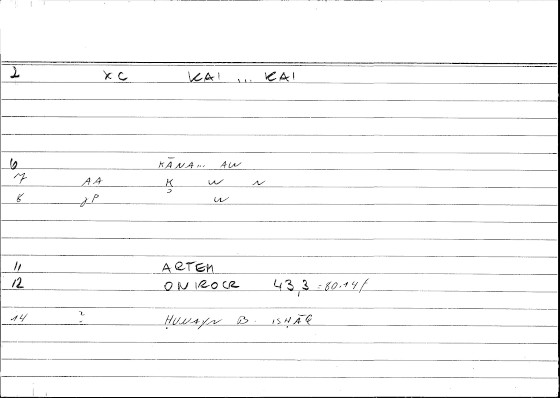 2 XC KAI ... KAI
6 KĀNA... AW
7 AA K W N
8 JP W
11 ARTEM
12 ONIROCR 43,3 = 80.14/
14 ? ḤUNAYN B. ISḤĀQ